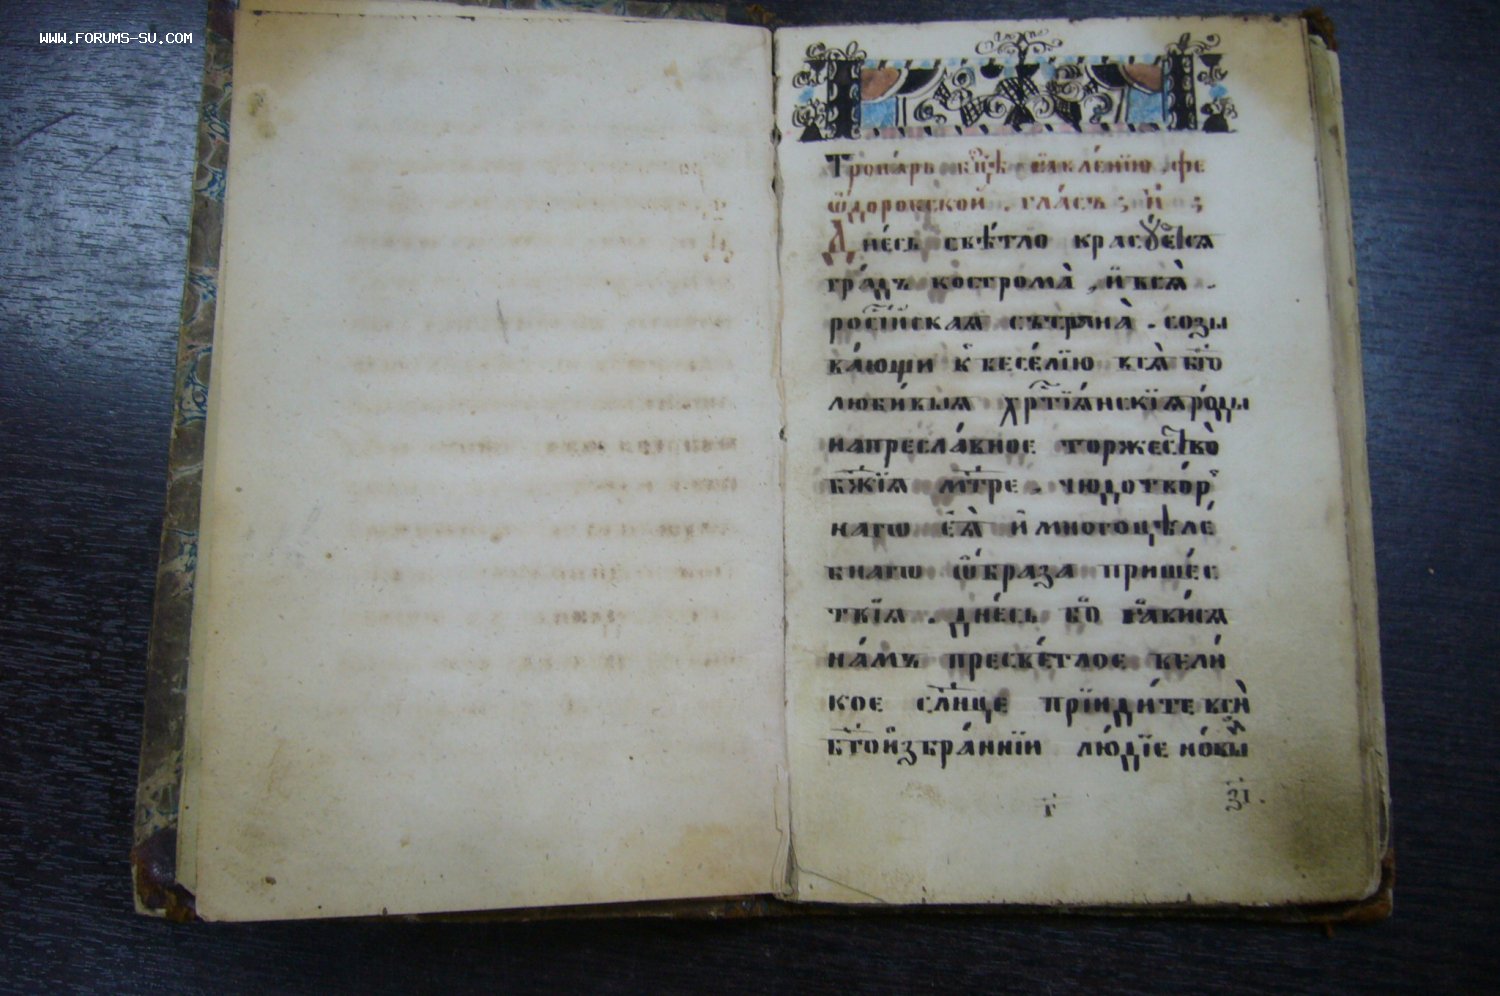 WWW.FORUMS-SU.COM
Тропа́рь бцѣ ꙗ҆вле́нїю ѳе
ѡ҆доровской . гла́съ ; и҃ ;
Дне́сь свѣ́тло красꙋ́етсѧ
гра́дъ кострома̀ , и҆ всѧ̀ .
росі́йскаѧ сътрана̀ . созы
ва́ющи к̾ весе́лїю всѧ̀ бг҃о
люби́выѧ хрⷭ҇тїѧ́нскїѧ ро́ды
на пресла́вное торжество̀
бж҃їѧ мт҃ре . чюдотво́р
нагѡ еѧ̀ и҆ многоцѣле́
бнагѡ ѡ҆́браза прише́с
твїѧ . дне́сь бо ꙗ҆ви́сѧ
на́мъ пресвѣ́тлое вели́
кое сл҃нце прїиди́те вси̑
бг҃оизбра́ннїи лю́дїе но́вы
и
г҃
з҃і